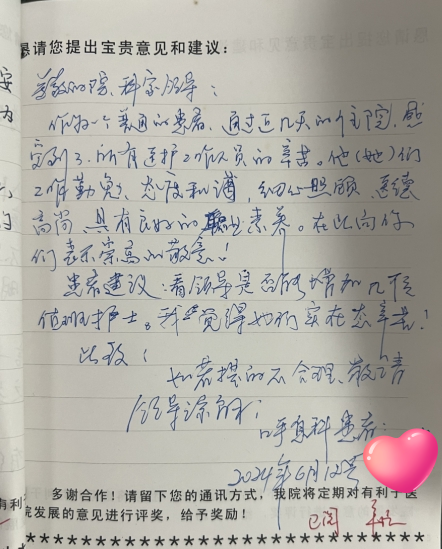 恳请您提出宝贵意见和建议：
尊敬的院、科室领导：
作为一个普通的患者，通过近几天的住院，感
受到了，所有医护工作人员的辛苦。他（她）们
工作勤勉，态度和谐，细心照顾，医德
高尚，具有良好的职业素养。在此向你
们表示崇高的敬意！
患者建议：看领导是否能增加几名
值班护士。我觉得她们实在太辛苦！
此致！
如若提的不合理、敬请
领导谅解；
呼吸科患者：
2024年6月12号
多谢合作！请留下您的通讯方式，我院将定期对有利于医
院发展的意见进行评奖，给予奖励！
已阅